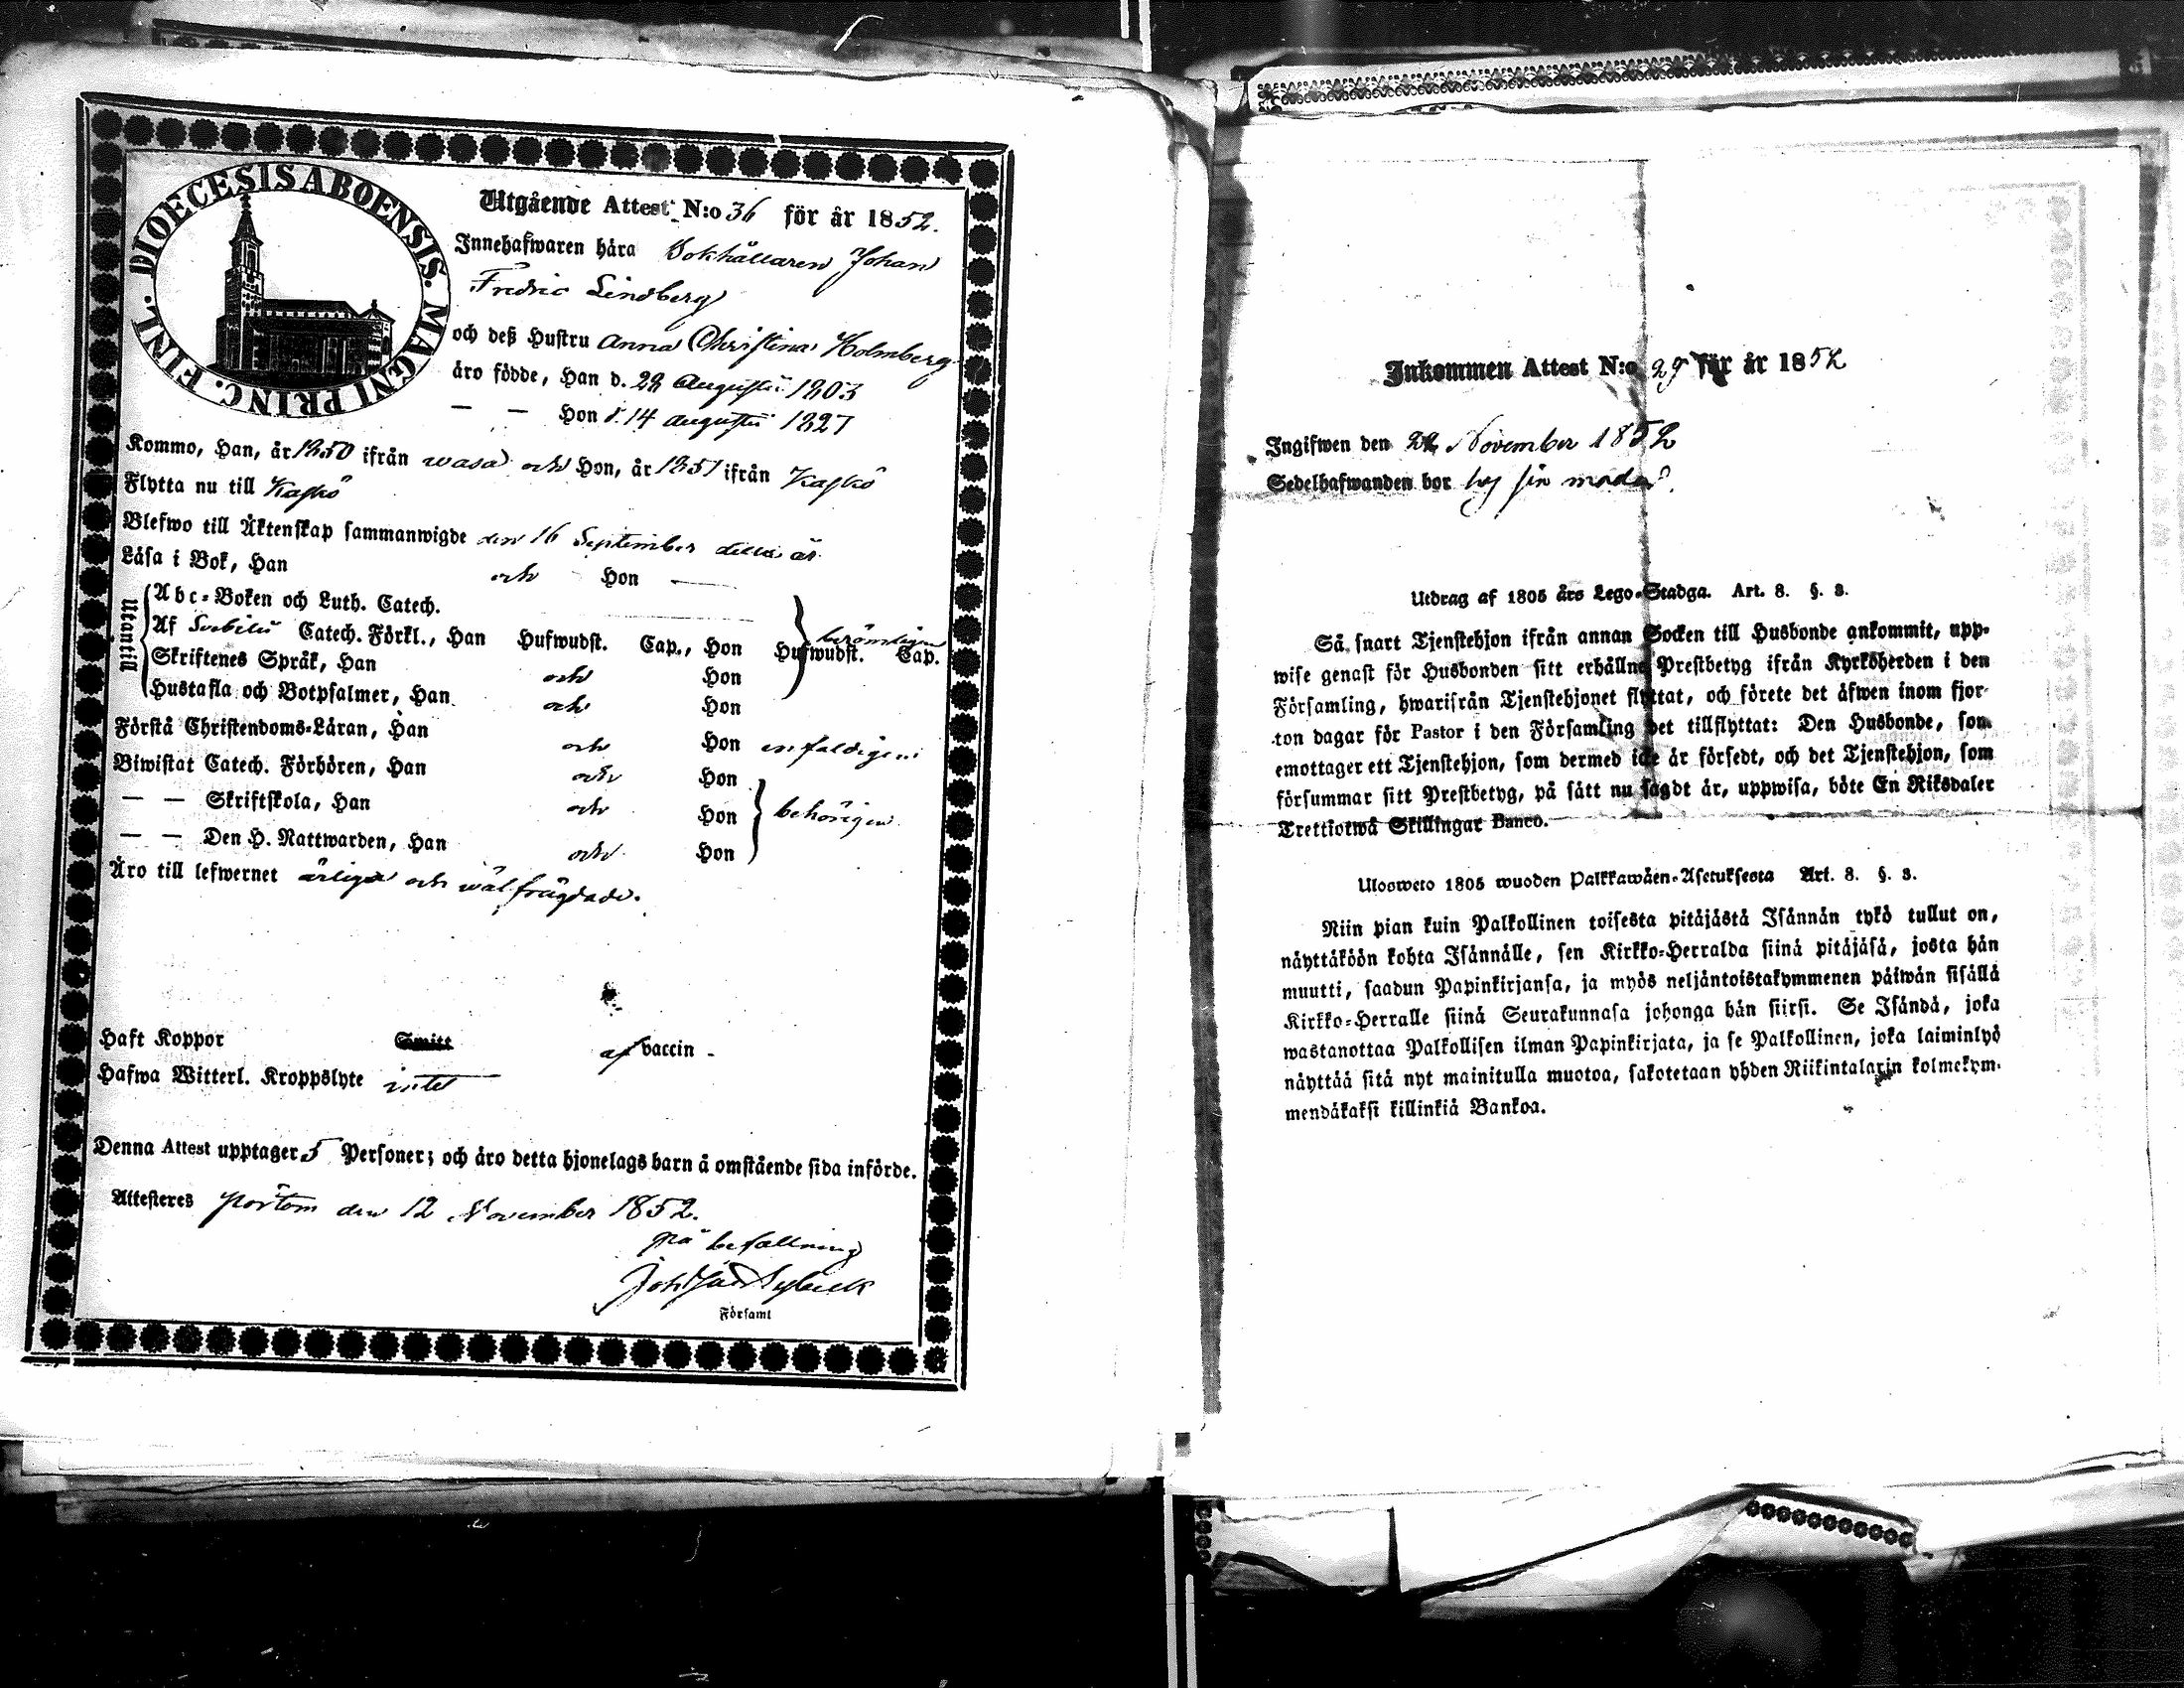 DIOECESIS ABOENSIS. MAGNI PRINC. FINL.
Utgående Attest N:o 36 för år 1852.
Innehafwaren håra Bokhållaren Johan
Fredric Lindberg
och deß Hustru Anna Christina Holmberg
åro födde, Han d. 28 Augusti 1803
— — Hon d. 14 Augusti 1827
Kommo, Han, år 1850 ifrån Wasa och Hon, år 1851 ifrån Kaskö
Flytta nu till Kaskö
Blefwo till Åktenskap sammanwigde den 16 September detta år
Låsa i Bok, Han och Hon
Utantill
Abc-Boken och Luth. Catech.
Af Svebilii Catech. Förkl., Han Hufwudst. Cap., Hon Hufwudst. Cap.
berömligen
Skriftenes Språk, Han och Hon
Hustafla och Botpsalmer, Han och Hon
Förstå Christendoms-Låran, Han och Hon enfaldigen
Biwistat Catech. Förhören, Han och Hon
— — Skriftskola, Han och Hon behörigen
— — Den H. Nattwarden, Han och Hon
Åro till lefwernet ärliga och wälfrägdade.
Haft Koppor Smitt af vaccin
Hafwa Witterl. Kroppslyte intet
Denna Attest upptager 5 Personer; och åro detta hjonelags barn å omstående sida införde.
Attesteres Pörtom den 12 November 1852.
på befallning
Församl
Inkommen Attest N:o 29 för år 1852
Ingifwen den 22 November 1852
Sedelhafwanden bor hos sin moder
Utdrag af 1805 års Lego-Stadga. Art. 8. §. 3.
Så snart Tjenstehjon ifrån annan Socken till Husbonde ankommit, upp-
wise genast för Husbonden sitt erhållne Prestbetyg ifrån Kyrkoherden i den
Församling, hwarifrån Tjenstehjonet flyttat, och förete det åfwen inom fjor-
ton dagar för Pastor i den Församling det tillflyttat: Den Husbonde, som
emottager ett Tjenstehjon, som dermed icke år försedt, och det Tjenstehjon, som
försummar sitt Prestbetyg, på sått nu sagdt år, uppwisa, böte En Riksdaler
Trettiotwå Skillingar Banco.
Ulosweto 1805 wuoden Palkkawåen-Asetuksesta Art. 8. §. 3.
Niin pian kuin Palkollinen toisesta pitåjåstå Isånnån tykö tullut on,
nåyttåköön kohta Isånnålle, sen Kirkko-Herralda siinå pitåjåså, josta hån
muutti, saadun Papinkirjansa, ja myös neljåntoistakymmenen påiwån sisållå
Kirkko-Herralle siinå Seurakunnasa johonga hån siirsi. Se Isåndå, joka
wastanottaa Palkollisen ilman Papinkirjata, ja se Palkollinen, joka laiminlyö
nåyttåå sitå nyt mainitulla muotoa, sakotetaan yhden Riikintalarin kolmekym-
mendåkaksi killinkiå Bankoa.